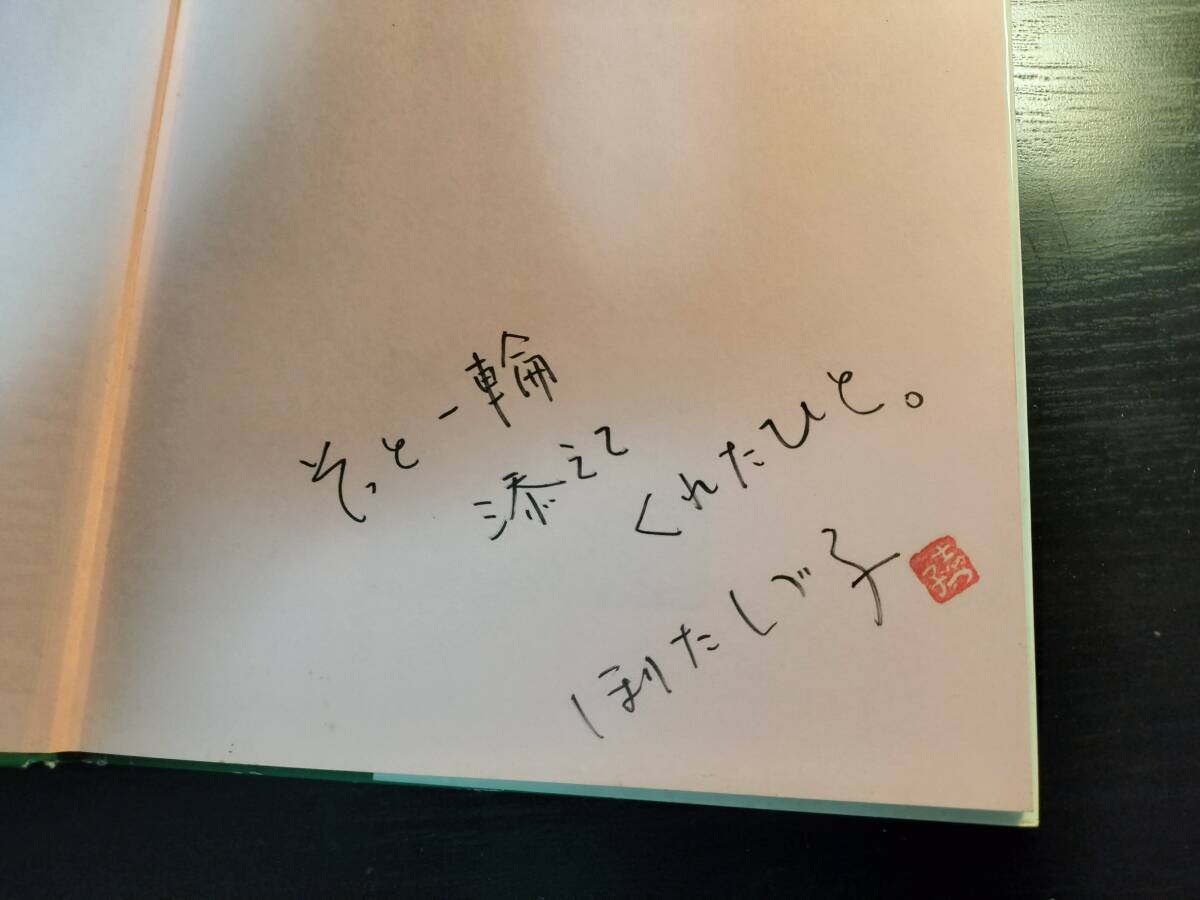 そっと一輪
添えて
くれたひと。
ほりたしづ子